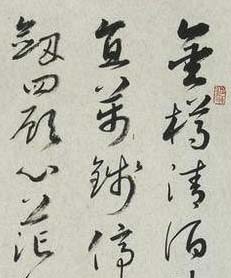 金樽清酒
直萬錢停
劒四顧心茫